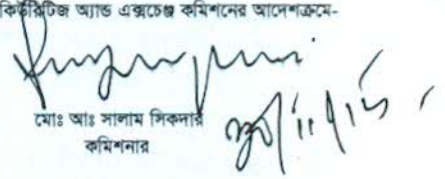 সিকিউরিটিজ অ্যান্ড এক্সচেঞ্জ কমিশনের আদেশক্রমে-
মোঃ আঃ সালাম সিকদার
কমিশনার